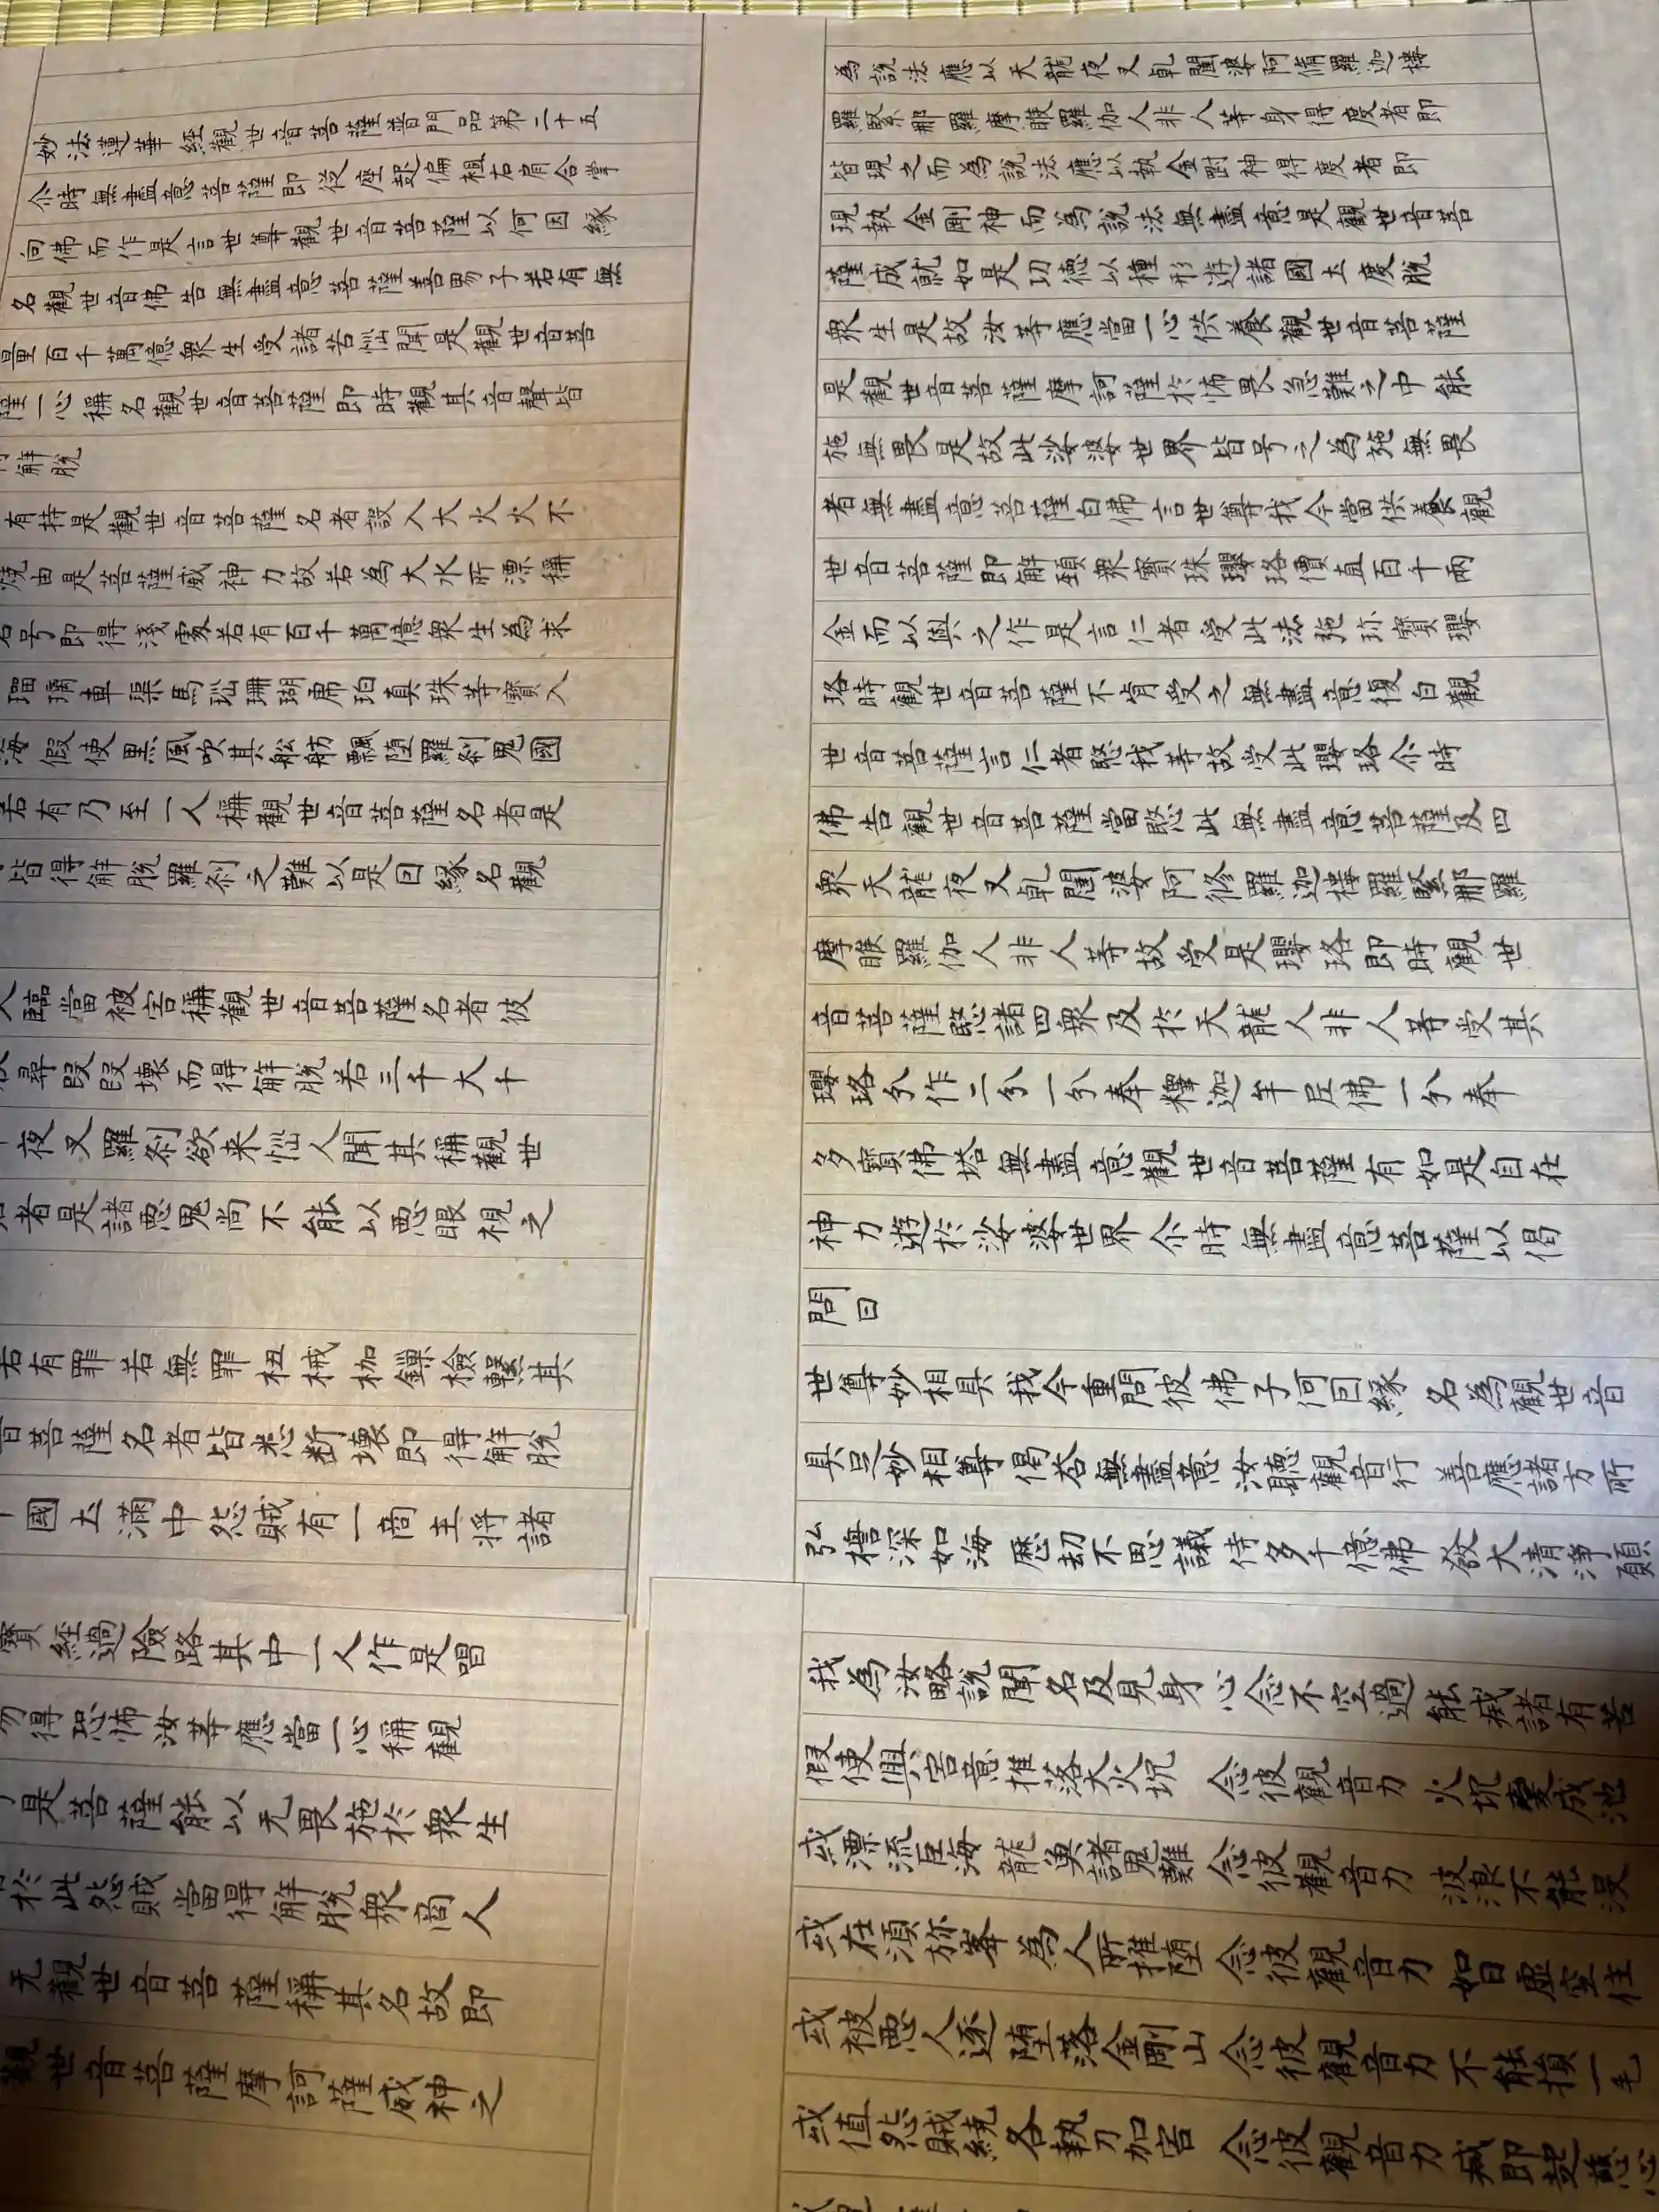 妙法蓮華經觀世音菩薩普門品第二十五
尒時無盡意菩薩即從座起偏袒右肩合掌
向佛而作是言世尊觀世音菩薩以何因緣
名觀世音佛告無盡意菩薩善男子若有無
量百千萬億衆生受諸苦惱聞是觀世音菩
薩一心稱名觀世音菩薩即時觀其音聲皆
解脫
有持是觀世音菩薩名者設入大火火不
燒由是菩薩威神力故若為大水所漂稱
名号即得淺處若有百千萬億衆生為求
瑠璃車渠馬瑙珊瑚虎珀真珠等寶入
海假使黑風吹其船舫飄堕羅刹鬼國
若有乃至一人稱觀世音菩薩名者是
皆得解脫羅刹之難以是因緣名觀
人臨當被害稱觀世音菩薩名者彼
尋段段壞而得解脫若三千大千
夜叉羅刹欲来惱人聞其稱觀世
名者是諸惡鬼尚不能以惡眼視之
若有罪若無罪杻械枷鏁檢繫其
音菩薩名者皆悉断壞即得解脫
國土滿中怨賊有一商主將諸
寶經過險路其中一人作是唱
勿得恐怖汝等應當一心稱觀
是菩薩能以无畏施於衆生
於此怨賊當得解脫衆商人
无觀世音菩薩稱其名故即
觀世音菩薩摩訶薩威神之
為說法應以天龍夜叉乹闥婆阿脩羅迦樓
羅緊那羅摩睺羅伽人非人等身得度者即
皆現之而為說法應以執金剛神得度者即
現執金剛神而為說法無盡意是觀世音菩
薩成就如是功德以種形遊諸國土度脫
衆生是故汝等應當一心供養觀世音菩薩
是觀世音菩薩摩訶薩於怖畏急難之中能
施無畏是故此娑婆世界皆号之為施無畏
者無盡意菩薩白佛言世尊我今當供養觀
世音菩薩即解頸衆寶珠瓔珞價直百千兩
金而以與之作是言仁者受此法施珎寶瓔
珞時觀世音菩薩不肯受之無盡意復白觀
世音菩薩言仁者愍我等故受此瓔珞尒時
佛告觀世音菩薩當愍此無盡意菩薩及四
衆天龍夜叉乹闥婆阿修羅迦樓羅緊那羅
摩睺羅伽人非人等故受是瓔珞即時觀世
音菩薩愍諸四衆及於天龍人非人等受其
瓔珞分作二分一分奉釋迦牟尼佛一分奉
多寶佛塔無盡意觀世音菩薩有如是自在
神力遊於娑婆世界尒時無盡意菩薩以偈
問曰
世尊妙相具 我今重問彼 佛子何因緣 名為觀世音
具足妙相尊 偈荅無盡意 汝聽觀音行 善應諸方所
弘擔深如海 歷劫不思議 侍多千億佛 發大清淨願
我為汝略說 聞名及見身 心念不空過 能滅諸有苦
假使興害意 推落大火坑 念彼觀音力 火坑變成池
或漂流巨海 龍魚諸鬼難 念彼觀音力 波浪不能沒
或在須弥峯 為人所推墮 念彼觀音力 如日虛空住
或被惡人逐 堕落金剛山 念彼觀音力 不能損一毛
或值怨賊繞 各執刀加害 念彼觀音力 咸即起慈心